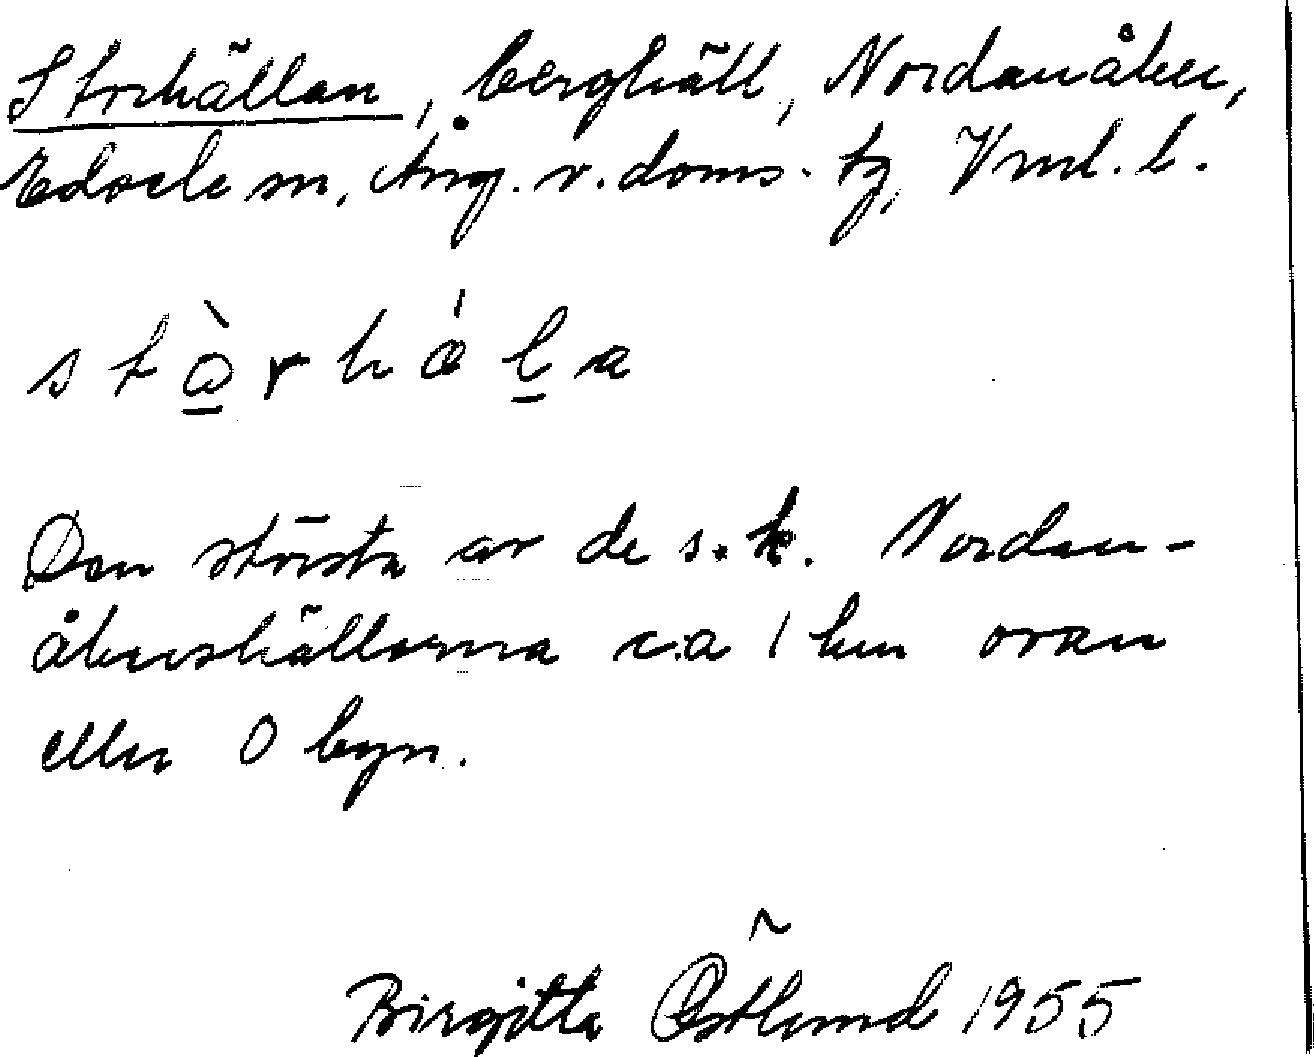 Storhällan, berghäll, Nordanåker,
Edsele sn, Ång. v. doms. tg, Vnl. l.
stòrhǽla
Den största av de s.k. Nordan-
åkershällorna c:a 1 km ovan
eller O byn.
Birgitta Östlund 1955